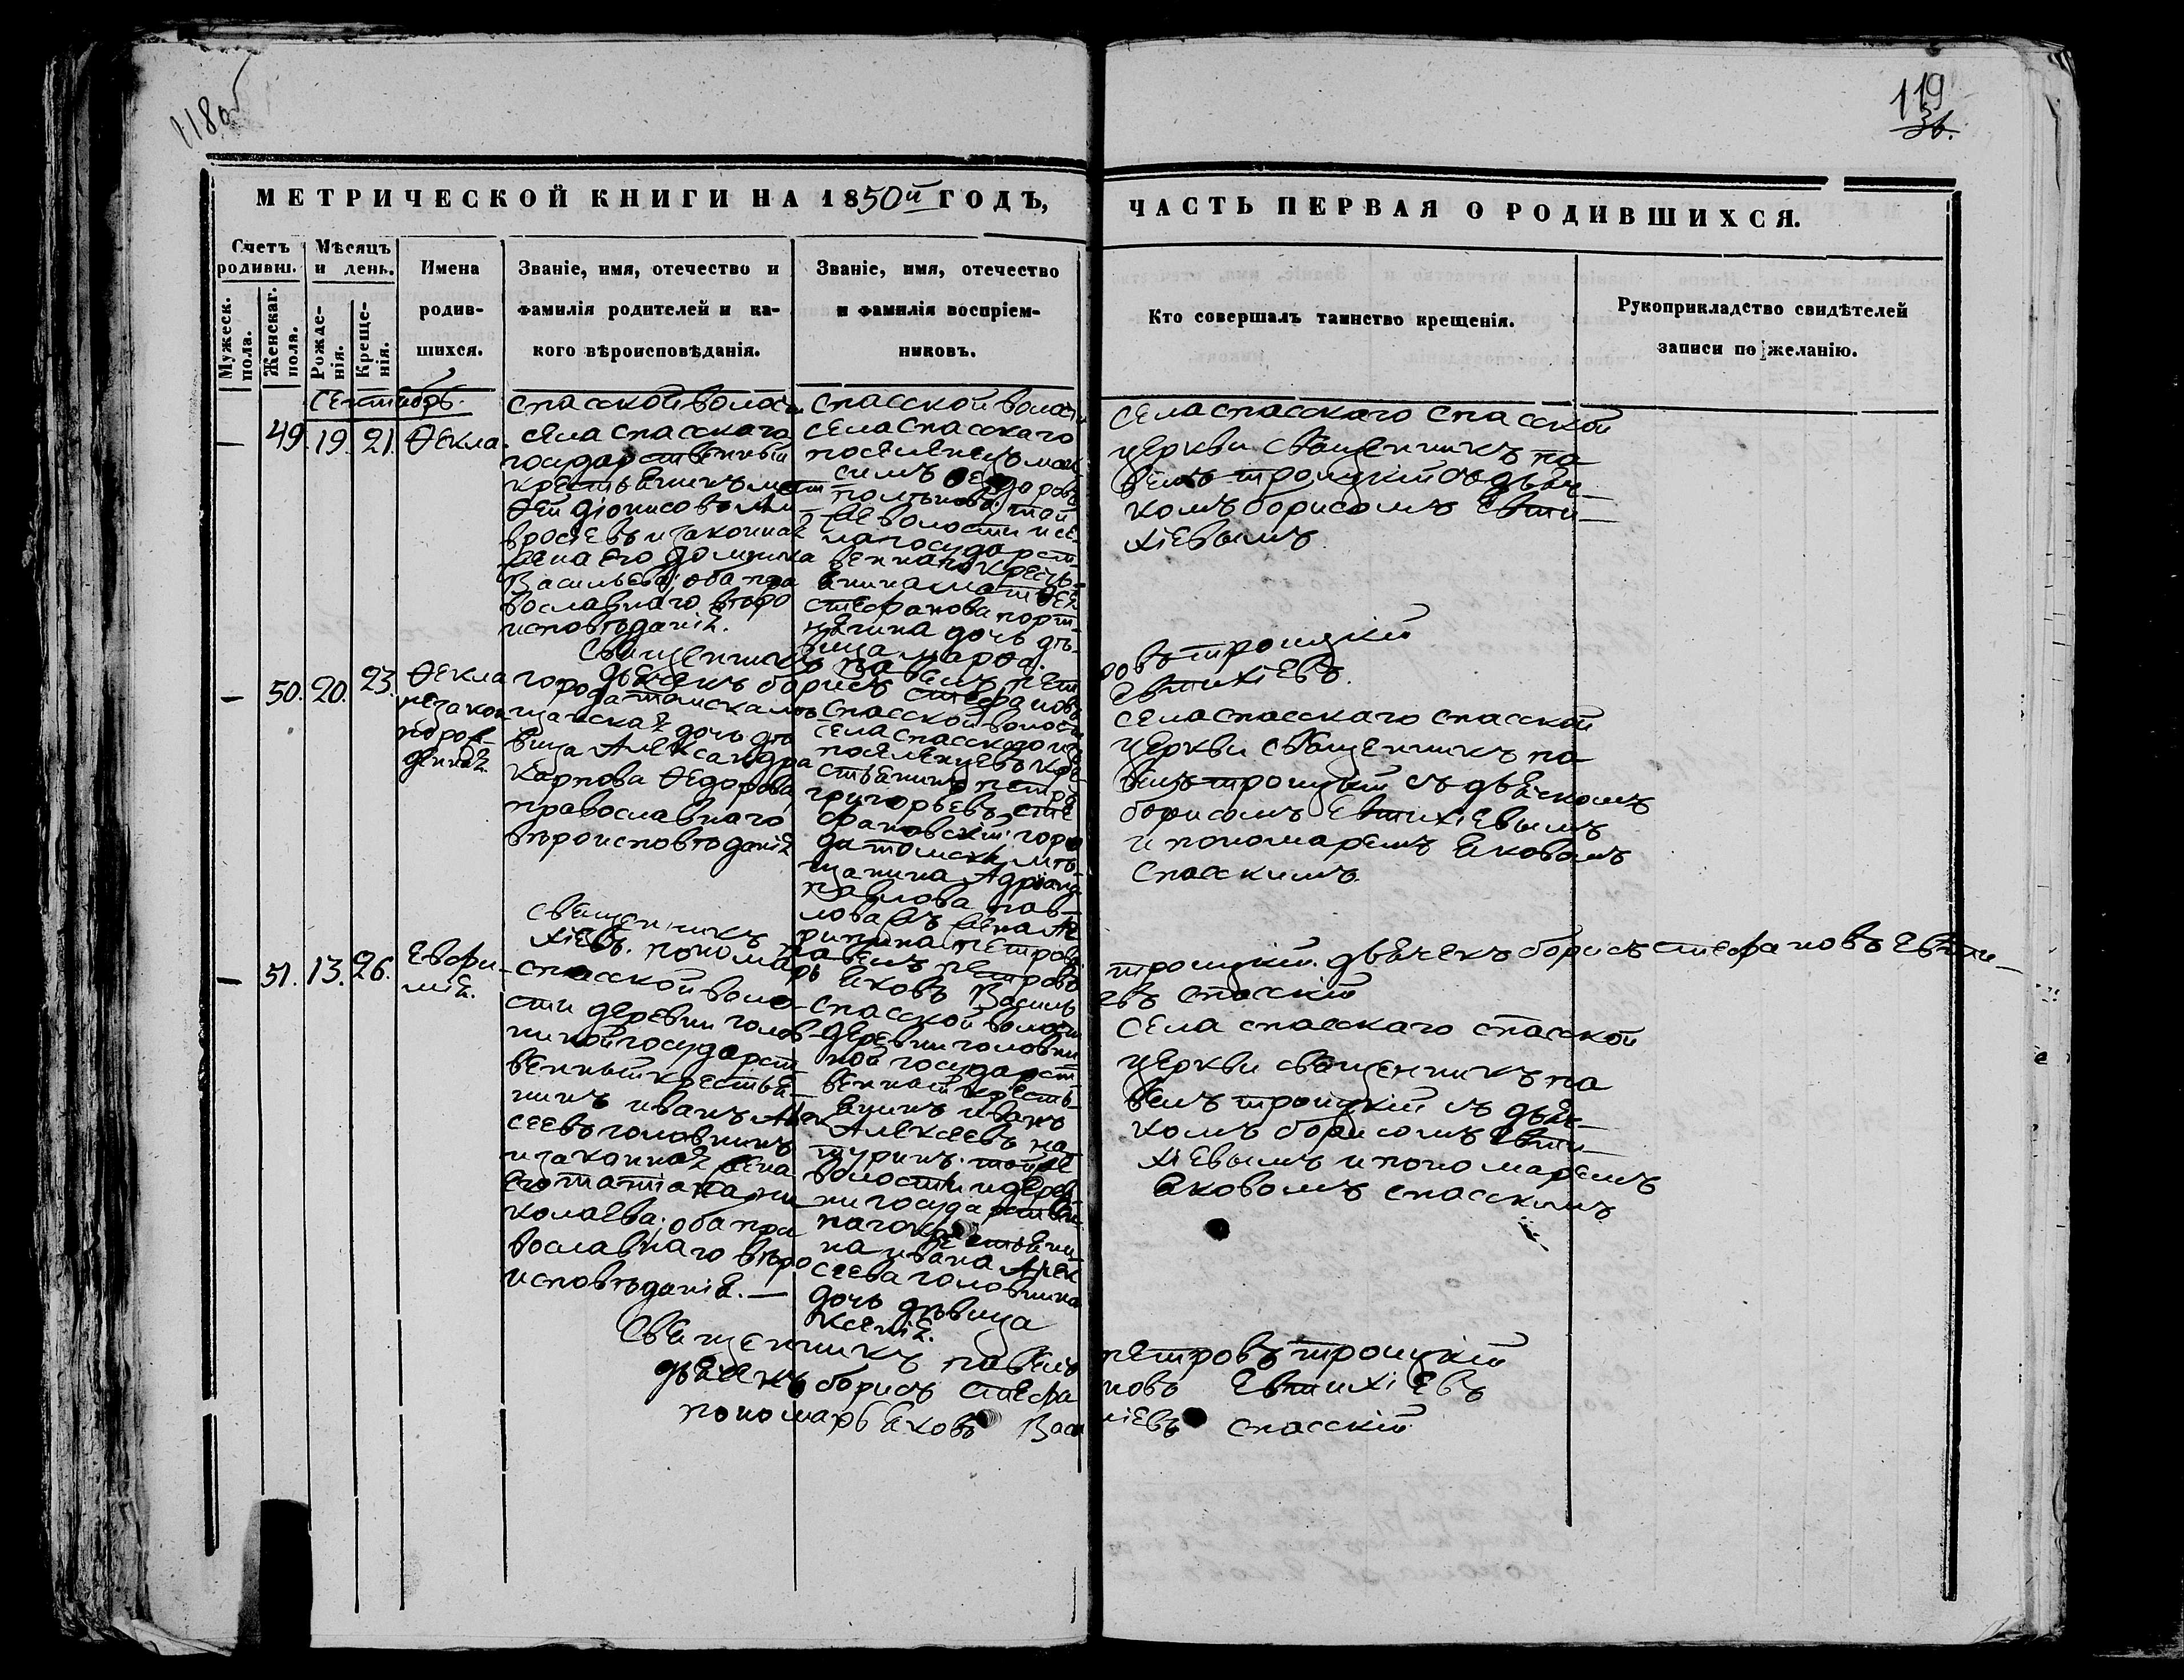 118об
119
36.
МЕТРИЧЕСКОЙ КНИГИ НА 1850й ГОДЪ,
ЧАСТЬ ПЕРВАЯ О РОДИВШИХСЯ.
Счетъ родивш.
Мужеск. пола.
Женскаг. пола.
Мѣсяцъ и день.
Рожденія.
Крещенія.
Имена
родив-
шихся.
Званіе, имя, отечество и
фамилія родителей и ка-
кого вѣроисповѣданія.
Званіе, имя, отечество
и фамилія воспріем-
никовъ.
Кто совершалъ таинство крещенія.
Рукоприкладство свидѣтелей
записи по желанію.
Сентябрь.
— 49. 19. 21. Ѳекла.
спасской волос
села спасскаго
государственный
крестьянинъ мат
ѳей діонисовъ
вросіевъ и законная
жена его домника
Васильева; оба пра
вославнаго вѣро
исповѣданія.
спасской волости
села спасскаго
поселенецъ мак
симъ ѳедоровъ
той
же волости и се
ла государст
веннаго кресть
янина матѳея
стефанова порт
нягина дочь дѣ
вица марѳа.
села спасскаго спасской
церкви священникъ па
велъ троицкій съ дьяч
комъ борисомъ Евти
хіевымъ
Священникъ павелъ петровъ троицкій
дьячекъ борисъ стефановъ Евтихіевъ.
— 50. 20. 23. Ѳекла
незакон
норож
денная
города томска мѣ
щанская дочь дѣ
вица Александра
карпова Ѳедорова,
православнаго
вѣроисповѣданія
спасской волости
села спасскаго из
поселенцевъ кре
стьянинъ петръ
григорьевъ сте
фановскій; горо
да томска мѣ
щанина Адріана
павлова пав
лова жена Аг
рипина петрова
села спасскаго спасской
церкви священникъ па
велъ троицкій съ дьячкомъ
борисомъ Евтихіевымъ
и пономаремъ Яковомъ
спасскимъ.
священникъ павелъ петровъ троицкій. дьячекъ борисъ стефановъ Евти
хіевъ. пономарь Яковъ Васильевъ спасскій
— 51. 13. 26. Евфи
мія.
спасской воло
сти деревни голов
ниной государст
венный крестья
нинъ иванъ Алек
сеевъ головнинъ
и законная жена
его татіана ни
колаева; оба пра
вославнаго вѣро
исповѣданія. —
спасской волости
деревни головни
ной государст
венный кресть
янинъ иванъ
Алексеевъ на
туринъ. той же
волости и дерев
ни государствен
наго крестьяни
на ивана Алек
сеева головнина
дочь дѣвица
ксенія.
села спасскаго спасской
церкви священникъ па
велъ троицкій съ дьяч
комъ борисомъ Евти
хіевымъ и пономаремъ
Яковомъ спасскимъ
Священникъ павелъ петровъ троицкій
дьячекъ борисъ стефановъ Евтихіевъ
пономарь Яковъ Василіевъ спасскій